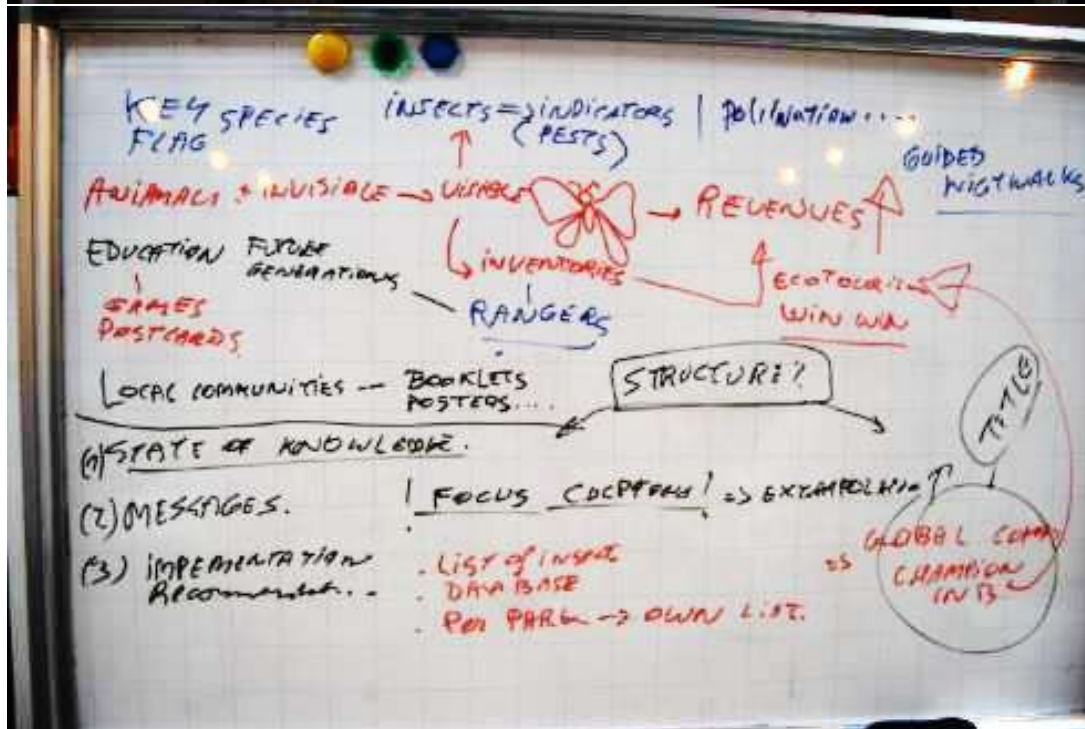 KEY SPECIES
FLAG
INSECTS => INDICATORS | POLLINATION....
(PESTS)
GUIDED
NIGTWALKS
INVISIBLE → VISIBLE → REVENUES
EDUCATION FUTURE
GENERATIONS
GAMES
POSTCARDS
INVENTORIES
RANGERS
ECOTOURISM
WIN WIN
LOCAL COMMUNITIES -- BOOKLETS
POSTERS....
STRUCTURE?
TITLE
(1) STATE OF KNOWLEDGE.
(2) MESSAGES. ! FOCUS ! =>
(3) IMPEMENTATION
. LIST OF INSECT
. DATA BASE
. PER PARK → OWN LIST.
=> GLOBAL
CHAMPION